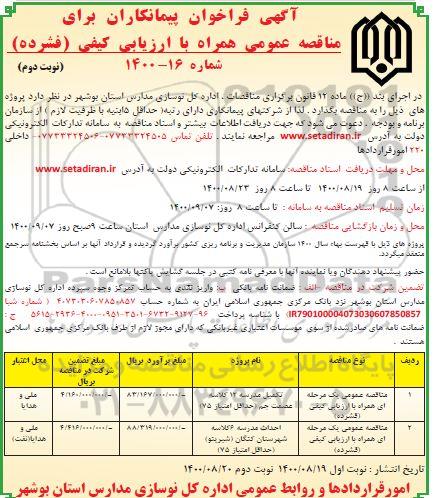 آگهی فراخوان پیمانکاران برای
مناقصه عمومی همراه با ارزیابی کیفی (فشرده)
شماره ۱۶-۱۴۰۰
(نوبت دوم)
در اجرای بند ((ج)) ماده ۱۲ قانون برگزاری مناقصات . اداره کل نوسازی مدارس استان بوشهر در نظر دارد پروژه
های ذیل را به مناقصه بگذارد . لذا از شرکتهای پیمانکاری دارای رتبه( حداقل ۵ابنیه با ظرفیت لازم ) از سازمان
برنامه و بودجه . دعوت می شود که جهت دریافت اطلاعات بیشتر و اسناد مناقصه به سامانه تدارکات الکترونیکی
دولت به آدرس www.setadiran.ir مراجعه نمایند . تلفن تماس ۰۷۷۳۳۳۲۴۵۰۵-۰۷۷۳۳۳۲۴۵۰۶ داخلی
۲۲۰ امورقراردادها
محل و مهلت دریافت اسناد مناقصه: سامانه تدارکات الکترونیکی دولت به آدرس www.setadiran.ir
از ساعت ۸ روز ۱۴۰۰/۰۸/۱۹ تا ساعت ۸ روز ۱۴۰۰/۰۸/۲۳
زمان تسلیم اسناد مناقصه به سامانه : تا ساعت ۸ روز: ۱۴۰۰/۰۹/۰۷
محل و زمان بازگشایی مناقصه : سالن کنفرانس اداره کل نوسازی مدارس استان ساعت ۹صبح روز ۱۴۰۰/۰۹/۰۷
پروژه های ذیل با فهرست بهاء سال ۱۴۰۰ سازمان مدیریت و برنامه ریزی کشور برآورد گردیده و قرارداد آنها بر اساس بخشنامه سرجمع
منعقد میگردد.
حضور پیشنهاد دهندگان ویا نماینده آنها با معرفی نامه کتبی در جلسه گشایش پاکتها بلامانع است .
تضمین شرکت در مناقصه :الف : ضمانت نامه بانکی ب: واریز نقدی به حساب تمرکز وجوه سپرده اداره کل نوسازی
مدارس استان بوشهر نزد بانک مرکزی جمهوری اسلامی ایران به شماره حساب ۴۰۷۳۰۳۰۶۰۷۸۵۰۸۵۷ ( شماره شبا
IR790100004073030607850857) با شناسه پرداخت
ضمانت نامه های صادرشده از سوی موسسات اعتباری غیربانکی که دارای مجوز لازم از طرف بانک مرکزی جمهوری اسلامی
هستند .
ردیف نوع مناقصه نام پروژه مبلغ برآورد بریال مبلغ تضمین شرکت در مناقصه بریال محل اعتبار
۱ مناقصه عمومی یک مرحله ای همراه با ارزیابی کیفی (فشرده) تکمیل مدرسه ۱۲ کلاسه عصمت جم (حداقل امتیاز ۷۵) ۸۳/۱۶۷/۰۰۰/۰۰۰/- ۴/۱۶۰/۰۰۰/۰۰۰/- ملی و هدایا
۲ مناقصه عمومی یک مرحله ای همراه با ارزیابی کیفی (فشرده) احداث مدرسه ۶کلاسه شهرستان کنگان (شیرینو) (حداقل امتیاز ۷۵) ۸۸/۳۱۹/۰۰۰/۰۰۰/- ۴/۴۱۶/۰۰۰/۰۰۰/- ملی و هدایا(نفت)
تاریخ انتشار : نوبت اول ۱۴۰۰/۰۸/۱۹ نوبت دوم ۱۴۰۰/۰۸/۲۰
امورقراردادها و روابط عمومی اداره کل نوسازی مدارس استان بوشهر